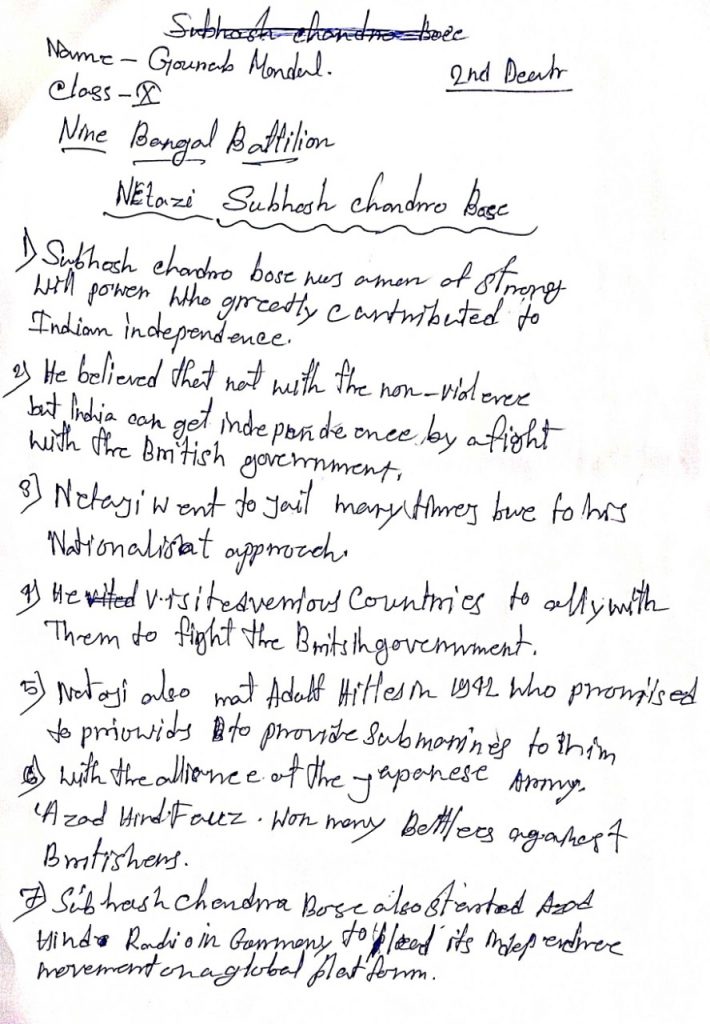 Subhash chandro Bose
Name - Gourab Mondal.
2nd Deatr
Class - X
Nine Bengal Battilion
NEtazi Subhash chandro Base
1) Subhash chandro bose was aman of strong
will power who greetly cantributed to
Indian independence.
2) He believed that not with the non-violence
but India can get independence by afight
with the British government.
3) Netaji went to jail many times bue to his
Nationalisat approach.
4) He visites various Countries to ally with
Them to fight the British government.
5) Netaji also mat Adalf Hitles in 1942 Who promised
to priowids to provide Submarines to him
6) With the alliance of the Japanese Army.
'Azad Hind Fauz. Won many Bettlers against
Britishers.
7) Subhash Chandra Bose also started Azod
Hind Radio in Germany to plead its independence
movement on a global platform.